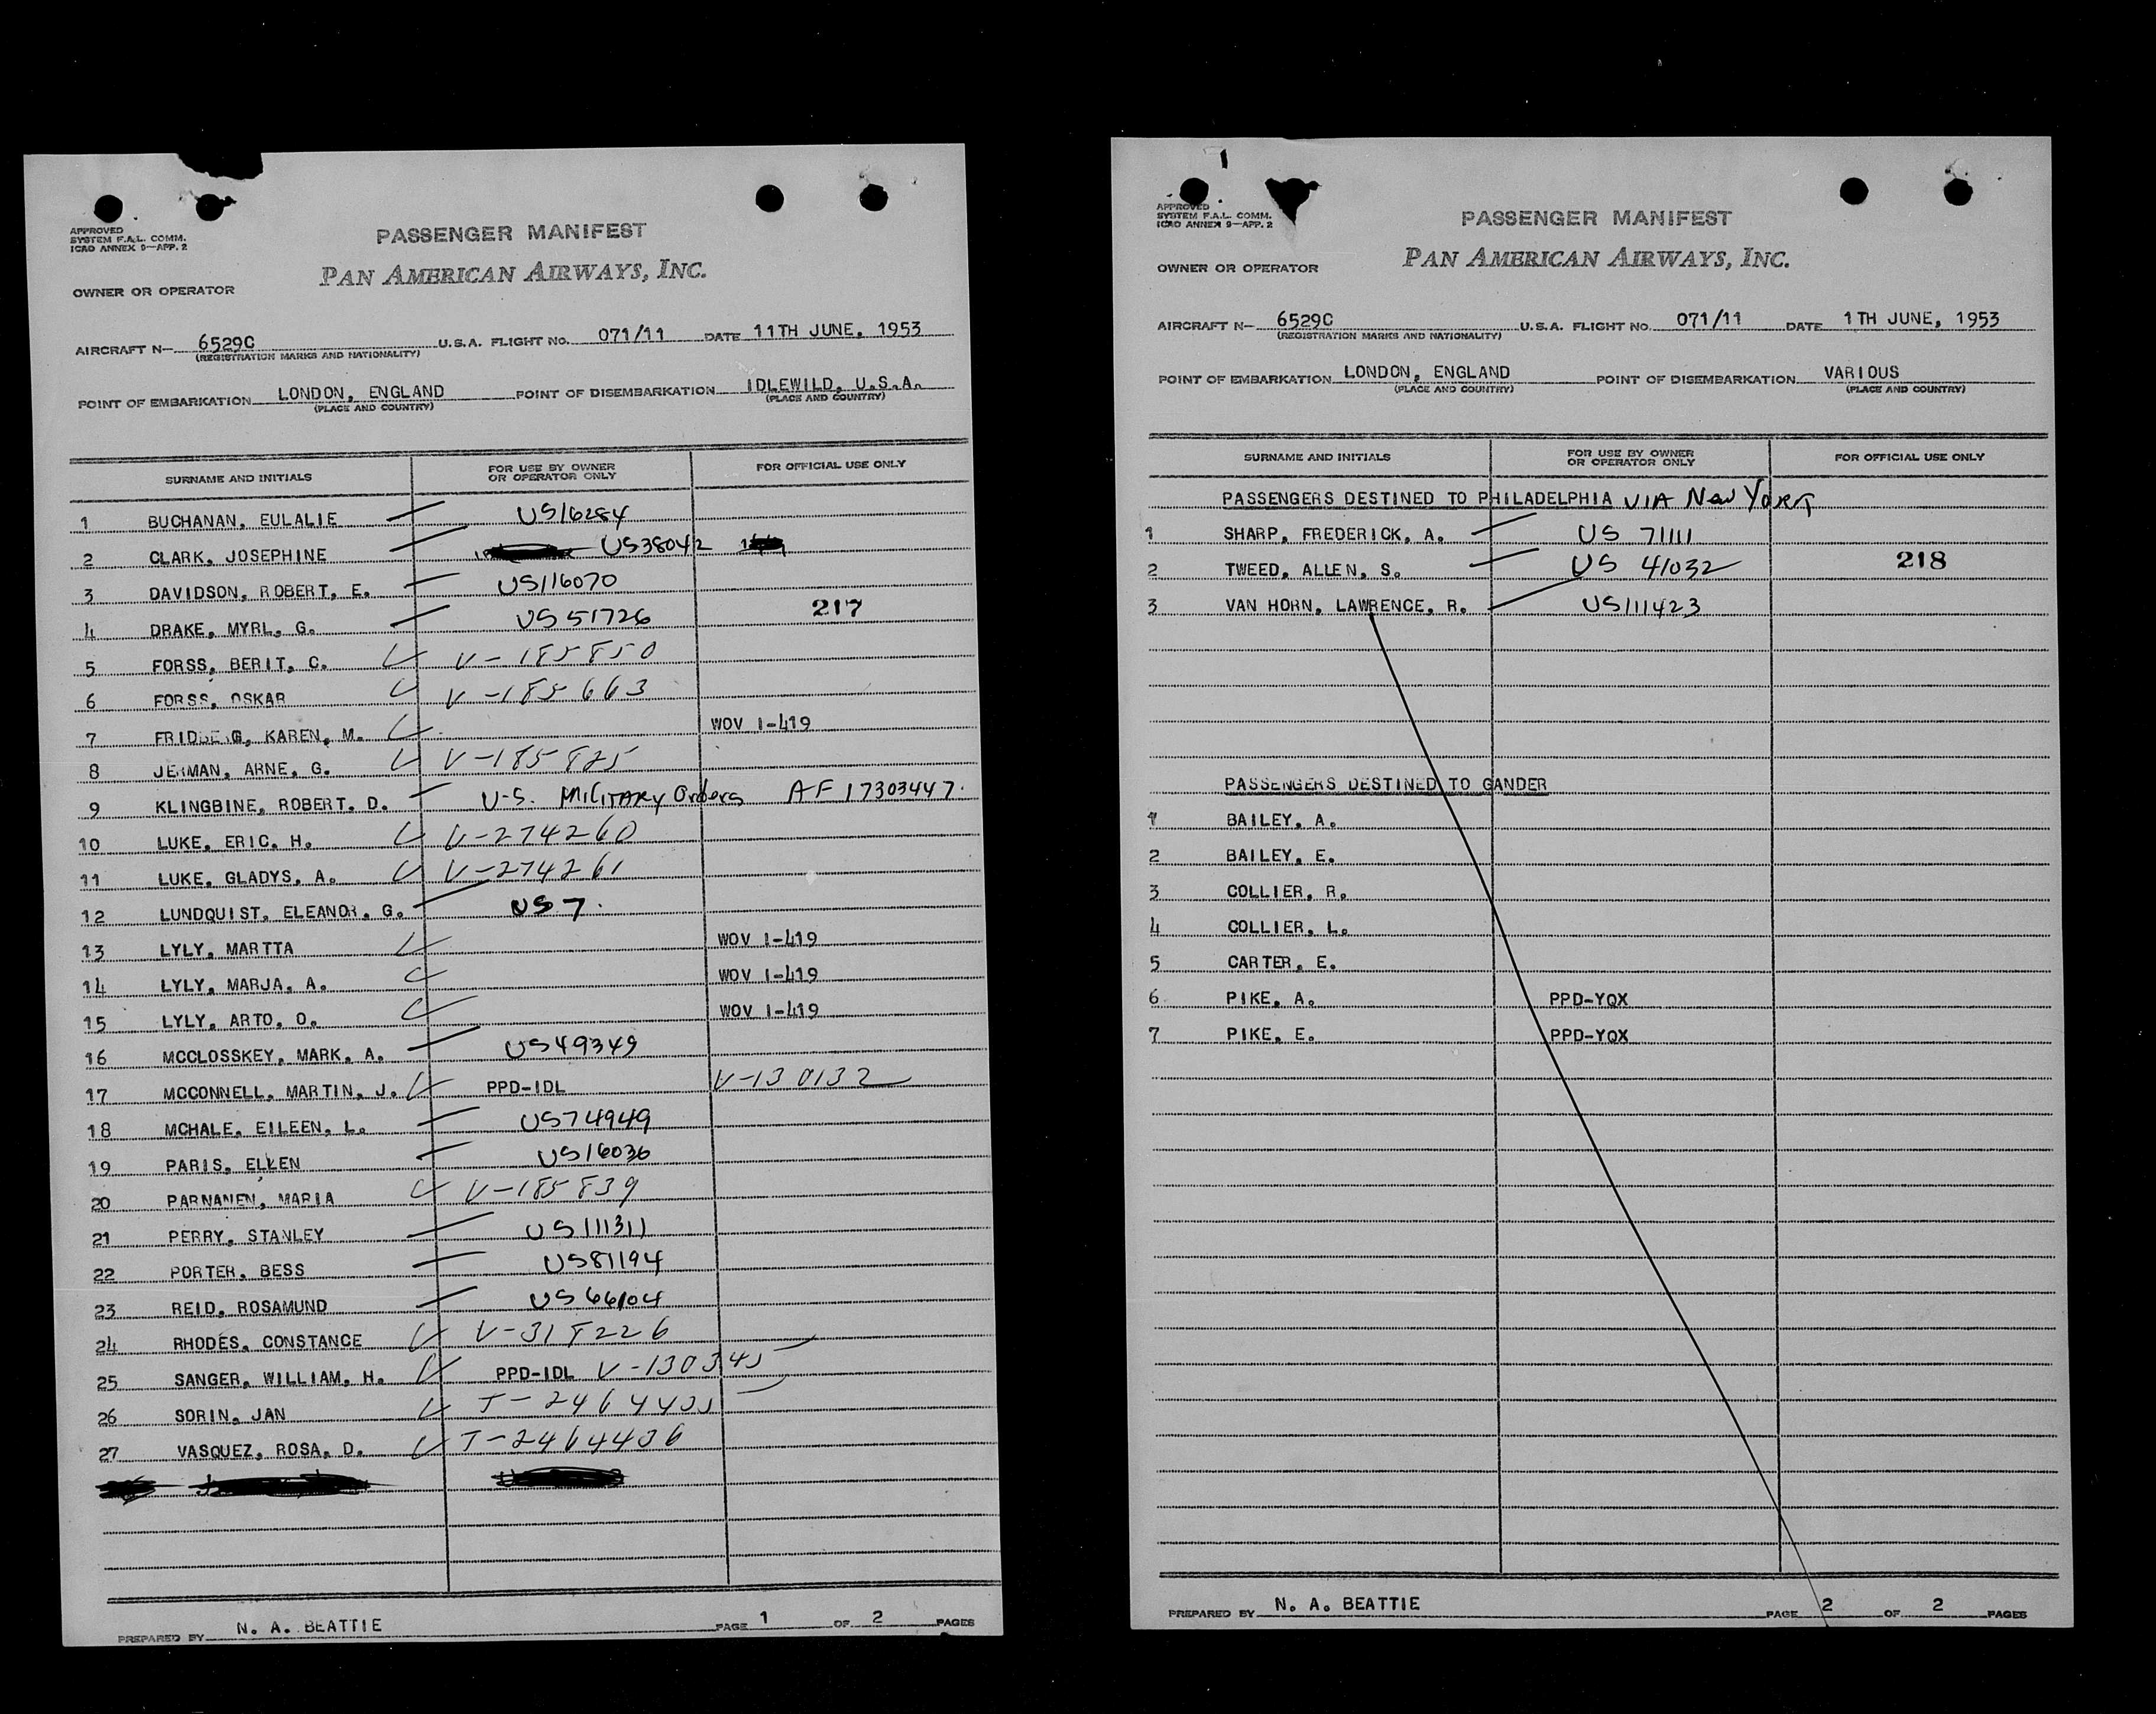 APPROVED
SYSTEM F.A.L. COMM.
ICAO ANNEX 9—APP. 2
PASSENGER MANIFEST
PAN AMERICAN AIRWAYS, INC.
OWNER OR OPERATOR
AIRCRAFT N— 6529C U.S.A. FLIGHT NO. 071/11 DATE 11TH JUNE, 1953
(REGISTRATION MARKS AND NATIONALITY)
POINT OF EMBARKATION LONDON, ENGLAND POINT OF DISEMBARKATION IDLEWILD, U.S.A.
(PLACE AND COUNTRY) (PLACE AND COUNTRY)
SURNAME AND INITIALS FOR USE BY OWNER OR OPERATOR ONLY FOR OFFICIAL USE ONLY
1 BUCHANAN, EULALIE US16284
2 CLARK, JOSEPHINE US38042
3 DAVIDSON, ROBERT, E. US116070
4 DRAKE, MYRL, G. US51726 217
5 FORSS, BERIT, C. V-185850
6 FORSS, OSKAR V-185663
7 KAREN, M. WOV 1-419
8 JERMAN, ARNE, G. V-185825
9 KLINGBINE, ROBERT, D. U.S. Military Orders AF 17303447.
10 LUKE, ERIC, H. V-274260
11 LUKE, GLADYS, A. V-274261
12 LUNDQUIST, ELEANOR, G. US 7.
13 LYLY, MARTTA WOV 1-419
14 LYLY, MARJA, A. WOV 1-419
15 LYLY, ARTO, O. WOV 1-419
16 MCCLOSSKEY, MARK, A. US49349
17 MCCONNELL, MARTIN, J. PPD-IDL V-130132
18 MCHALE, EILEEN, L. US74949
19 PARIS, ELLEN US16036
20 PARNANEN, MARIA V-185839
21 PERRY, STANLEY US111311
22 PORTER, BESS US81194
23 REID, ROSAMUND US66104
24 RHODES, CONSTANCE V-318226
25 SANGER, WILLIAM, H. PPD-IDL V-130345
26 SORIN, JAN
27 VASQUEZ, ROSA, D. T-2464436
PREPARED BY N. A. BEATTIE PAGE 1 OF 2 PAGES
APPROVED
SYSTEM F.A.L. COMM.
ICAO ANNEX 9—APP. 2
PASSENGER MANIFEST
PAN AMERICAN AIRWAYS, INC.
OWNER OR OPERATOR
AIRCRAFT N— 6529C U.S.A. FLIGHT NO. 071/11 DATE 1TH JUNE, 1953
(REGISTRATION MARKS AND NATIONALITY)
POINT OF EMBARKATION LONDON, ENGLAND POINT OF DISEMBARKATION VARIOUS
(PLACE AND COUNTRY) (PLACE AND COUNTRY)
SURNAME AND INITIALS FOR USE BY OWNER OR OPERATOR ONLY FOR OFFICIAL USE ONLY
PASSENGERS DESTINED TO PHILADELPHIA VIA New York
1 SHARP, FREDERICK, A. US 71111
2 TWEED, ALLEN, S. US 41032 218
3 VAN HORN, LAWRENCE, R. US111423
PASSENGERS DESTINED TO GANDER
1 BAILEY, A.
2 BAILEY, E.
3 COLLIER, R.
4 COLLIER, L.
5 CARTER, E.
6 PIKE, A. PPD-YQX
7 PIKE, E. PPD-YQX
PREPARED BY N. A. BEATTIE PAGE 2 OF 2 PAGES